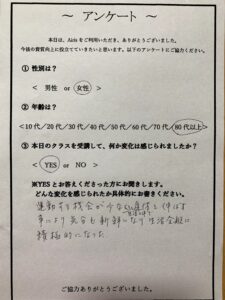 ～ アンケート ～
本日は、Airisをご利用いただき、ありがとうございました。
今後の資質向上に役立てていきたいと思います。以下のアンケートにご協力ください。
① 性別は？
< 男性 or 女性 >
② 年齢は？
<10代／20代／30代／40代／50代／60代／70代／80代以上>
③ 本日のクラスを受講して、何か変化は感じられましたか？
< YES or NO >
※YESとお答えくださった方にお聞きします。
どんな変化を感じられたか具体的にお書きください。
運動する機会が少ない 身体を伸ばす
事により気分も新鮮になり生活全般に
積極的になった
ご協力ありがとうございました。